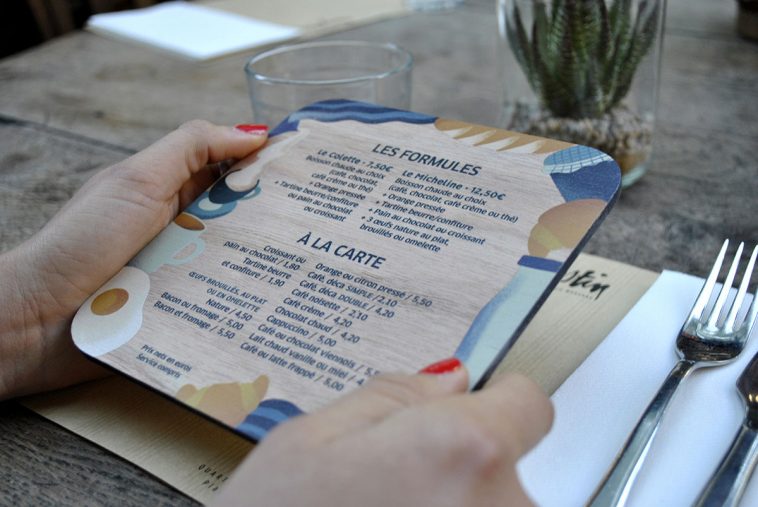 LES FORMULES
Le Colette - 7,50€
Boisson chaude au choix
(café, chocolat,
café crème ou thé)
+ Orange pressée
+ Tartine beurre/confiture
ou pain au chocolat
ou croissant
Le Micheline - 12,50€
Boisson chaude au choix
(café, chocolat, café crème ou thé)
+ Orange pressée
+ Tartine beurre/confiture
+ Pain au chocolat ou croissant
+ 3 œufs nature au plat,
brouillés ou omelette
À LA CARTE
Croissant ou
pain au chocolat / 1,80
Tartine beurre
et confiture / 1,90
ŒUFS BROUILLÉS, AU PLAT
OU EN OMELETTE
Nature / 4,50
Bacon ou fromage / 5,00
Bacon et fromage / 5,50
Prix nets en euros
Service compris
Orange ou citron pressé / 5,50
Café, déca SIMPLE / 2,10
Café, déca DOUBLE / 4,20
Café noisette / 2,10
Café crème / 4,20
Chocolat chaud / 4,20
Cappuccino / 5,00
Café ou chocolat viennois / 5,50
Lait chaud vanille ou miel /
Café ou latte frappé / 5,00